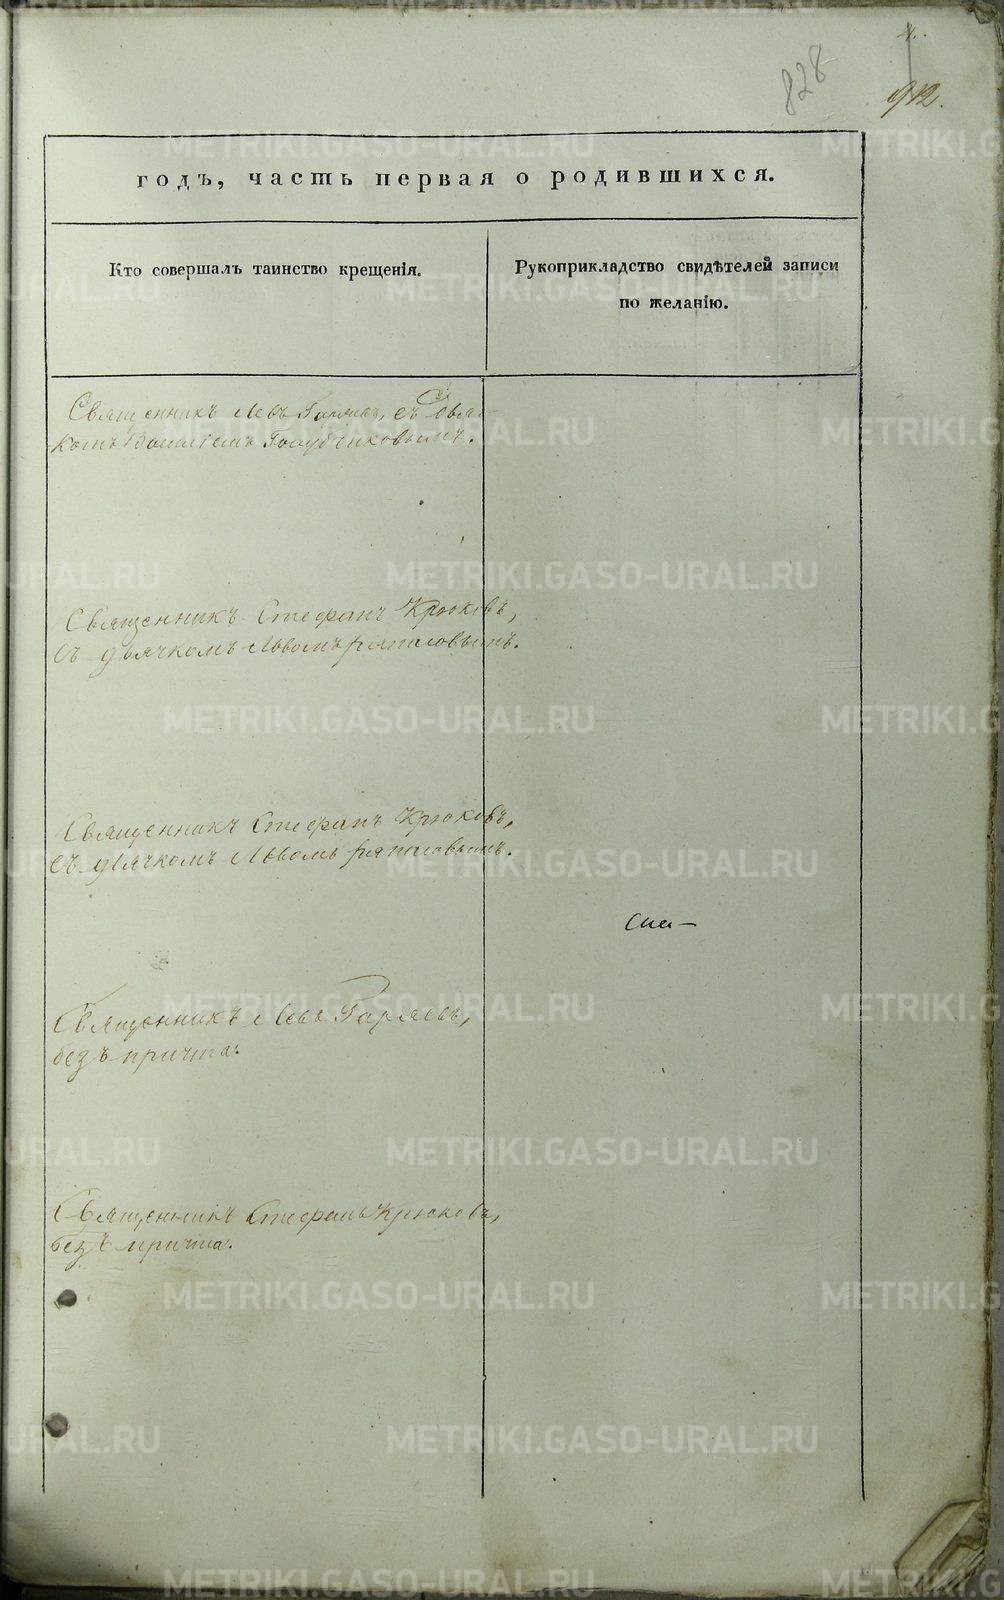 828
912.
годъ, часть первая о родившихся.
Кто совершалъ таинство крещенія.
Рукоприкладство свидѣтелей записи
по желанію.
Священникъ Левъ съ
Василіемъ Голубчиковымъ.
Священникъ Стефанъ Крюковъ,
съ дьячкомъ Львомъ
Священникъ Стефанъ Крюковъ,
съ дьячкомъ Львомъ
Священникъ Левъ Гаряевъ,
безъ причта.
Священникъ Стефанъ Крюковъ,
безъ причта.
METRIKI.GASO-URAL.RU